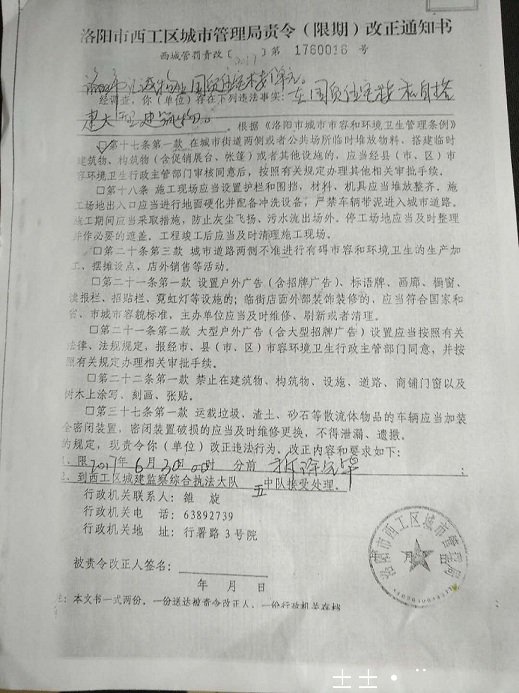 洛阳市西工区城市管理局责令（限期）改正通知书
西城管罚责改〔2017〕第 1760016 号
经调查，你（单位）存在下列违法事实：在国贸住宅楼私自搭
建大型建筑物。根据《洛阳市城市市容和环境卫生管理条例》
□第十七条第一款 在城市街道两侧或者公共场所临时堆放物料，搭建临时
建筑物、构筑物（含促销展台、帐篷）或者其他设施的，应当经县（市、区）市
容环境卫生行政主管部门审核同意后，按照有关规定办理其他相关审批手续。
□第十八条 施工现场应当设置护栏和围挡，材料、机具应当堆放整齐。施
工场地出入口应当进行地面硬化并配备冲洗设备，严禁车辆带泥进入城市道路。
施工期间应当采取措施，防止灰尘飞扬、污水流出场外。停工场地应当及时整理
并作必要的遮盖。工程竣工后应当及时清理施工现场。
□第二十条第三款 城市道路两侧不准进行有碍市容和环境卫生的生产加
工、摆摊设点、店外销售等活动。
□第二十一条第一款 设置户外广告（含招牌广告）、标语牌、画廊、橱窗、
读报栏、招贴栏、霓虹灯等设施的；临街店面外部装饰装修的，应当符合国家和
省、市城市容貌标准，主办单位应当及时维修、刷新或者清理。
□第二十一条第二款 大型户外广告（含大型招牌广告）设置应当按照有关
法律、法规规定，报经市、县（市、区）市容环境卫生行政主管部门同意，并按
照有关规定办理相关审批手续。
□第二十二条第一款 禁止在建筑物、构筑物、设施、道路、商铺门窗以及
树木上涂写、刻画、张贴。
□第三十七条第一款 运载垃圾、渣土、砂石等散流体物品的车辆应当加装
全密闭装置，密闭装置破损的应当及时维修更换，不得泄漏、遗撒。
的规定，现责令你（单位）改正违法行为、改正内容和要求如下：
1、限2017年6月30日 时 分前拆除完毕；
2、到西工区城建监察综合执法大队 五 中队接受处理。
行政机关联系人： 锥 旋
行政机关电 话： 63892739
行政机关地 址： 行署路3号院
被责令改正人签名：
年 月 日
注：本文书一式两份，一份送达被责令改正人，一份行政机关存档
洛阳市西工区城市管理局